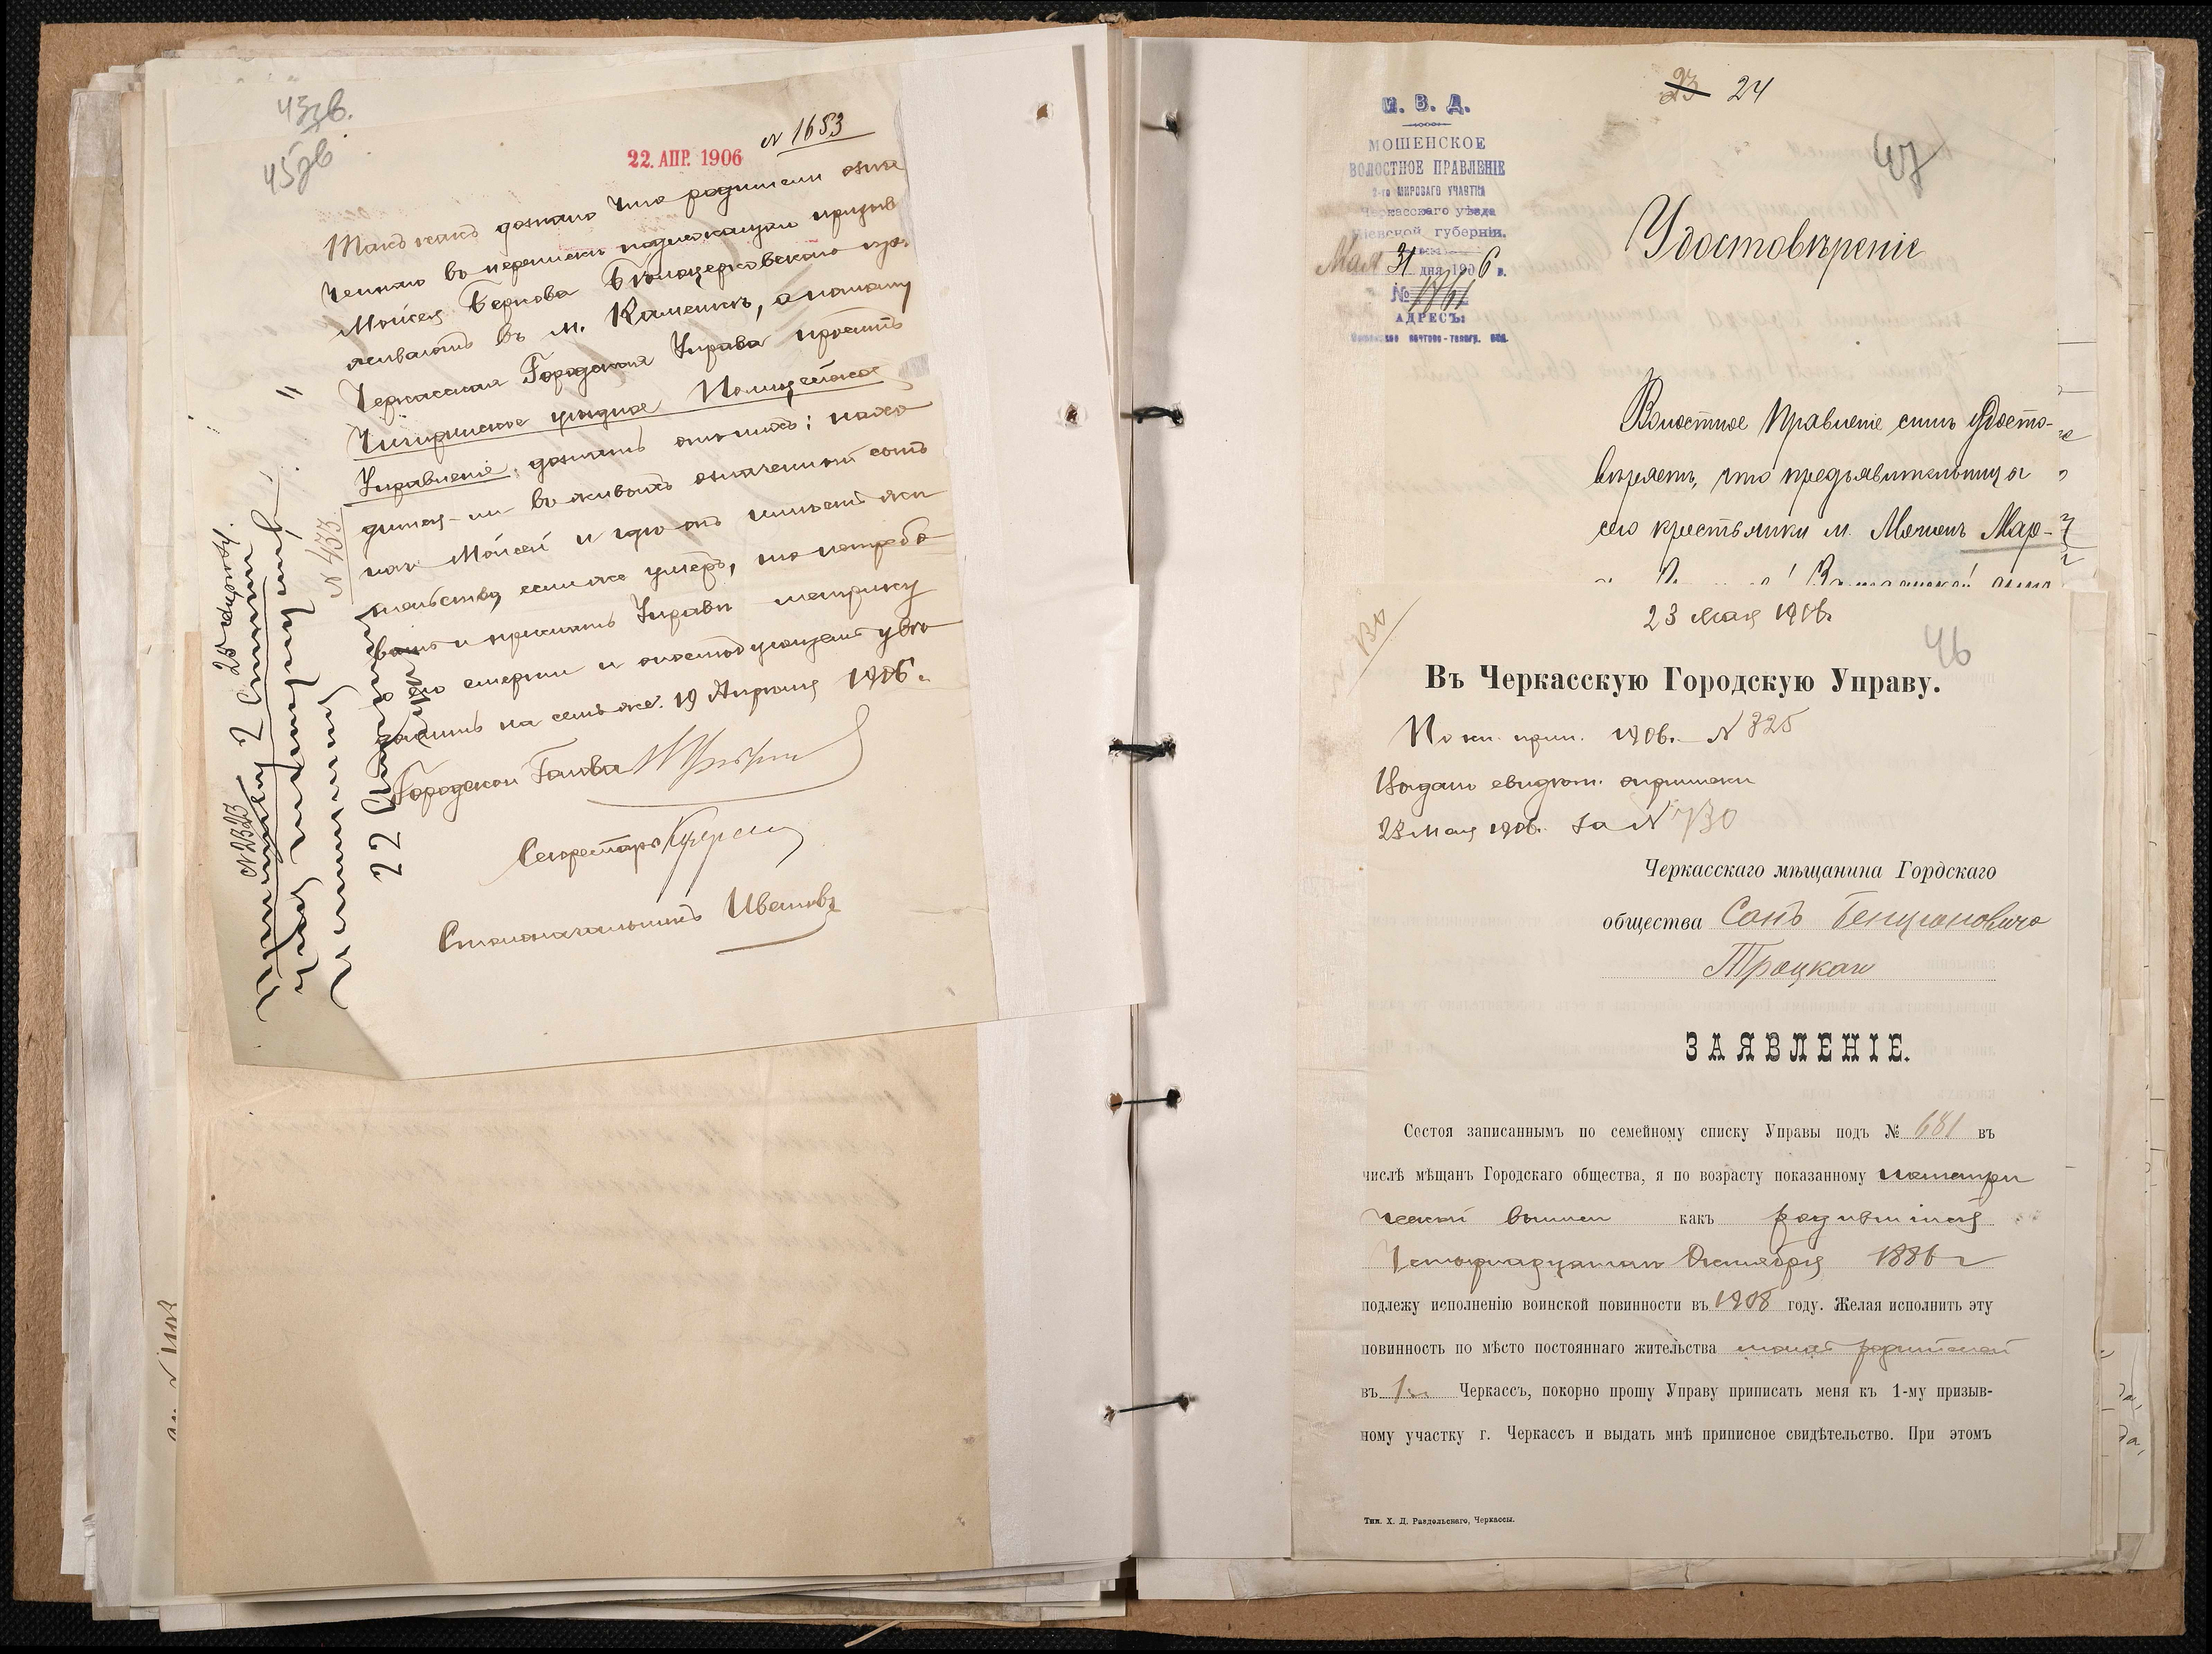 43 зв.
45 зв
22. АПР. 1906
№ 1653
Такъ какъ дознано что родители озна
ченнаго въ перепискѣ подлежащаго призыв
Мойсея Беркова Бѣлоцерковскаго про
живаютъ въ м. Каменкѣ, а потому
Черкасская Городская Управа проситъ
Чигиринское уѣздное Полицейское
Управленіе дознать отъ нихъ: нахо
дится-ли въ живыхъ означенный сынъ
ихъ Мойсей и гдѣ онъ имѣетъ жи
тельство, если же умеръ, то потребо
вать и прислать Управѣ метрику
о его смерти и о послѣдующемъ увѣдо
домить на семъ же. 19 Апрѣля 1906 г.
Городской Голова
Секретарь
Столоначальникъ Ивановъ
№ 433
№ 2323
25 апрѣля
22
23 24
47
М. В. Д.
МОШЕНСКОЕ
ВОЛОСТНОЕ ПРАВЛЕНІЕ
2-го МИРОВАГО УЧАСТКА
Черкасскаго уѣзда
Кіевской губерніи.
Мая 31 дня 1906 г.
№ 1761
АДРЕСЪ:
Удостовѣреніе
Волостное Правленіе симъ удосто-
вѣряетъ, что предъявительница
сего крестьянка м. Мошенъ Мар-
730
23 мая 1906 г.
46
Въ Черкасскую Городскую Управу.
По кн. прип. 1906 г. № 325
Выдано свидѣт. о приписки
23 мая 1906 г. за № 730
Черкасскаго мѣщанина Гордскаго
общества Бенціоновича
Троцкаго
ЗАЯВЛЕНІЕ.
Состоя записаннымъ по семейному списку Управы подъ № 681 въ
числѣ мѣщанъ Городскаго общества, я по возрасту показанному по метри
ческой выписи какъ родившійся
Четырнадцатаго Октября 1886 г
подлежу исполненію воинской повинности въ 1908 году. Желая исполнить эту
повинность по мѣсто постояннаго жительства моихъ родителей
въ г. Черкассъ, покорно прошу Управу приписать меня къ 1-му призыв-
ному участку г. Черкассъ и выдать мнѣ приписное свидѣтельство. При этомъ
Тип. Х. Д. Раздольскаго, Черкассы.